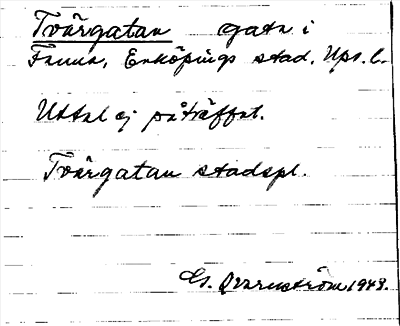 Tvärgatan gata i
Fanna, Enköpings stad, Ups. l.
Uttal ej påträffat.
Tvärgatan stadspl.
Qvarnström 1943.